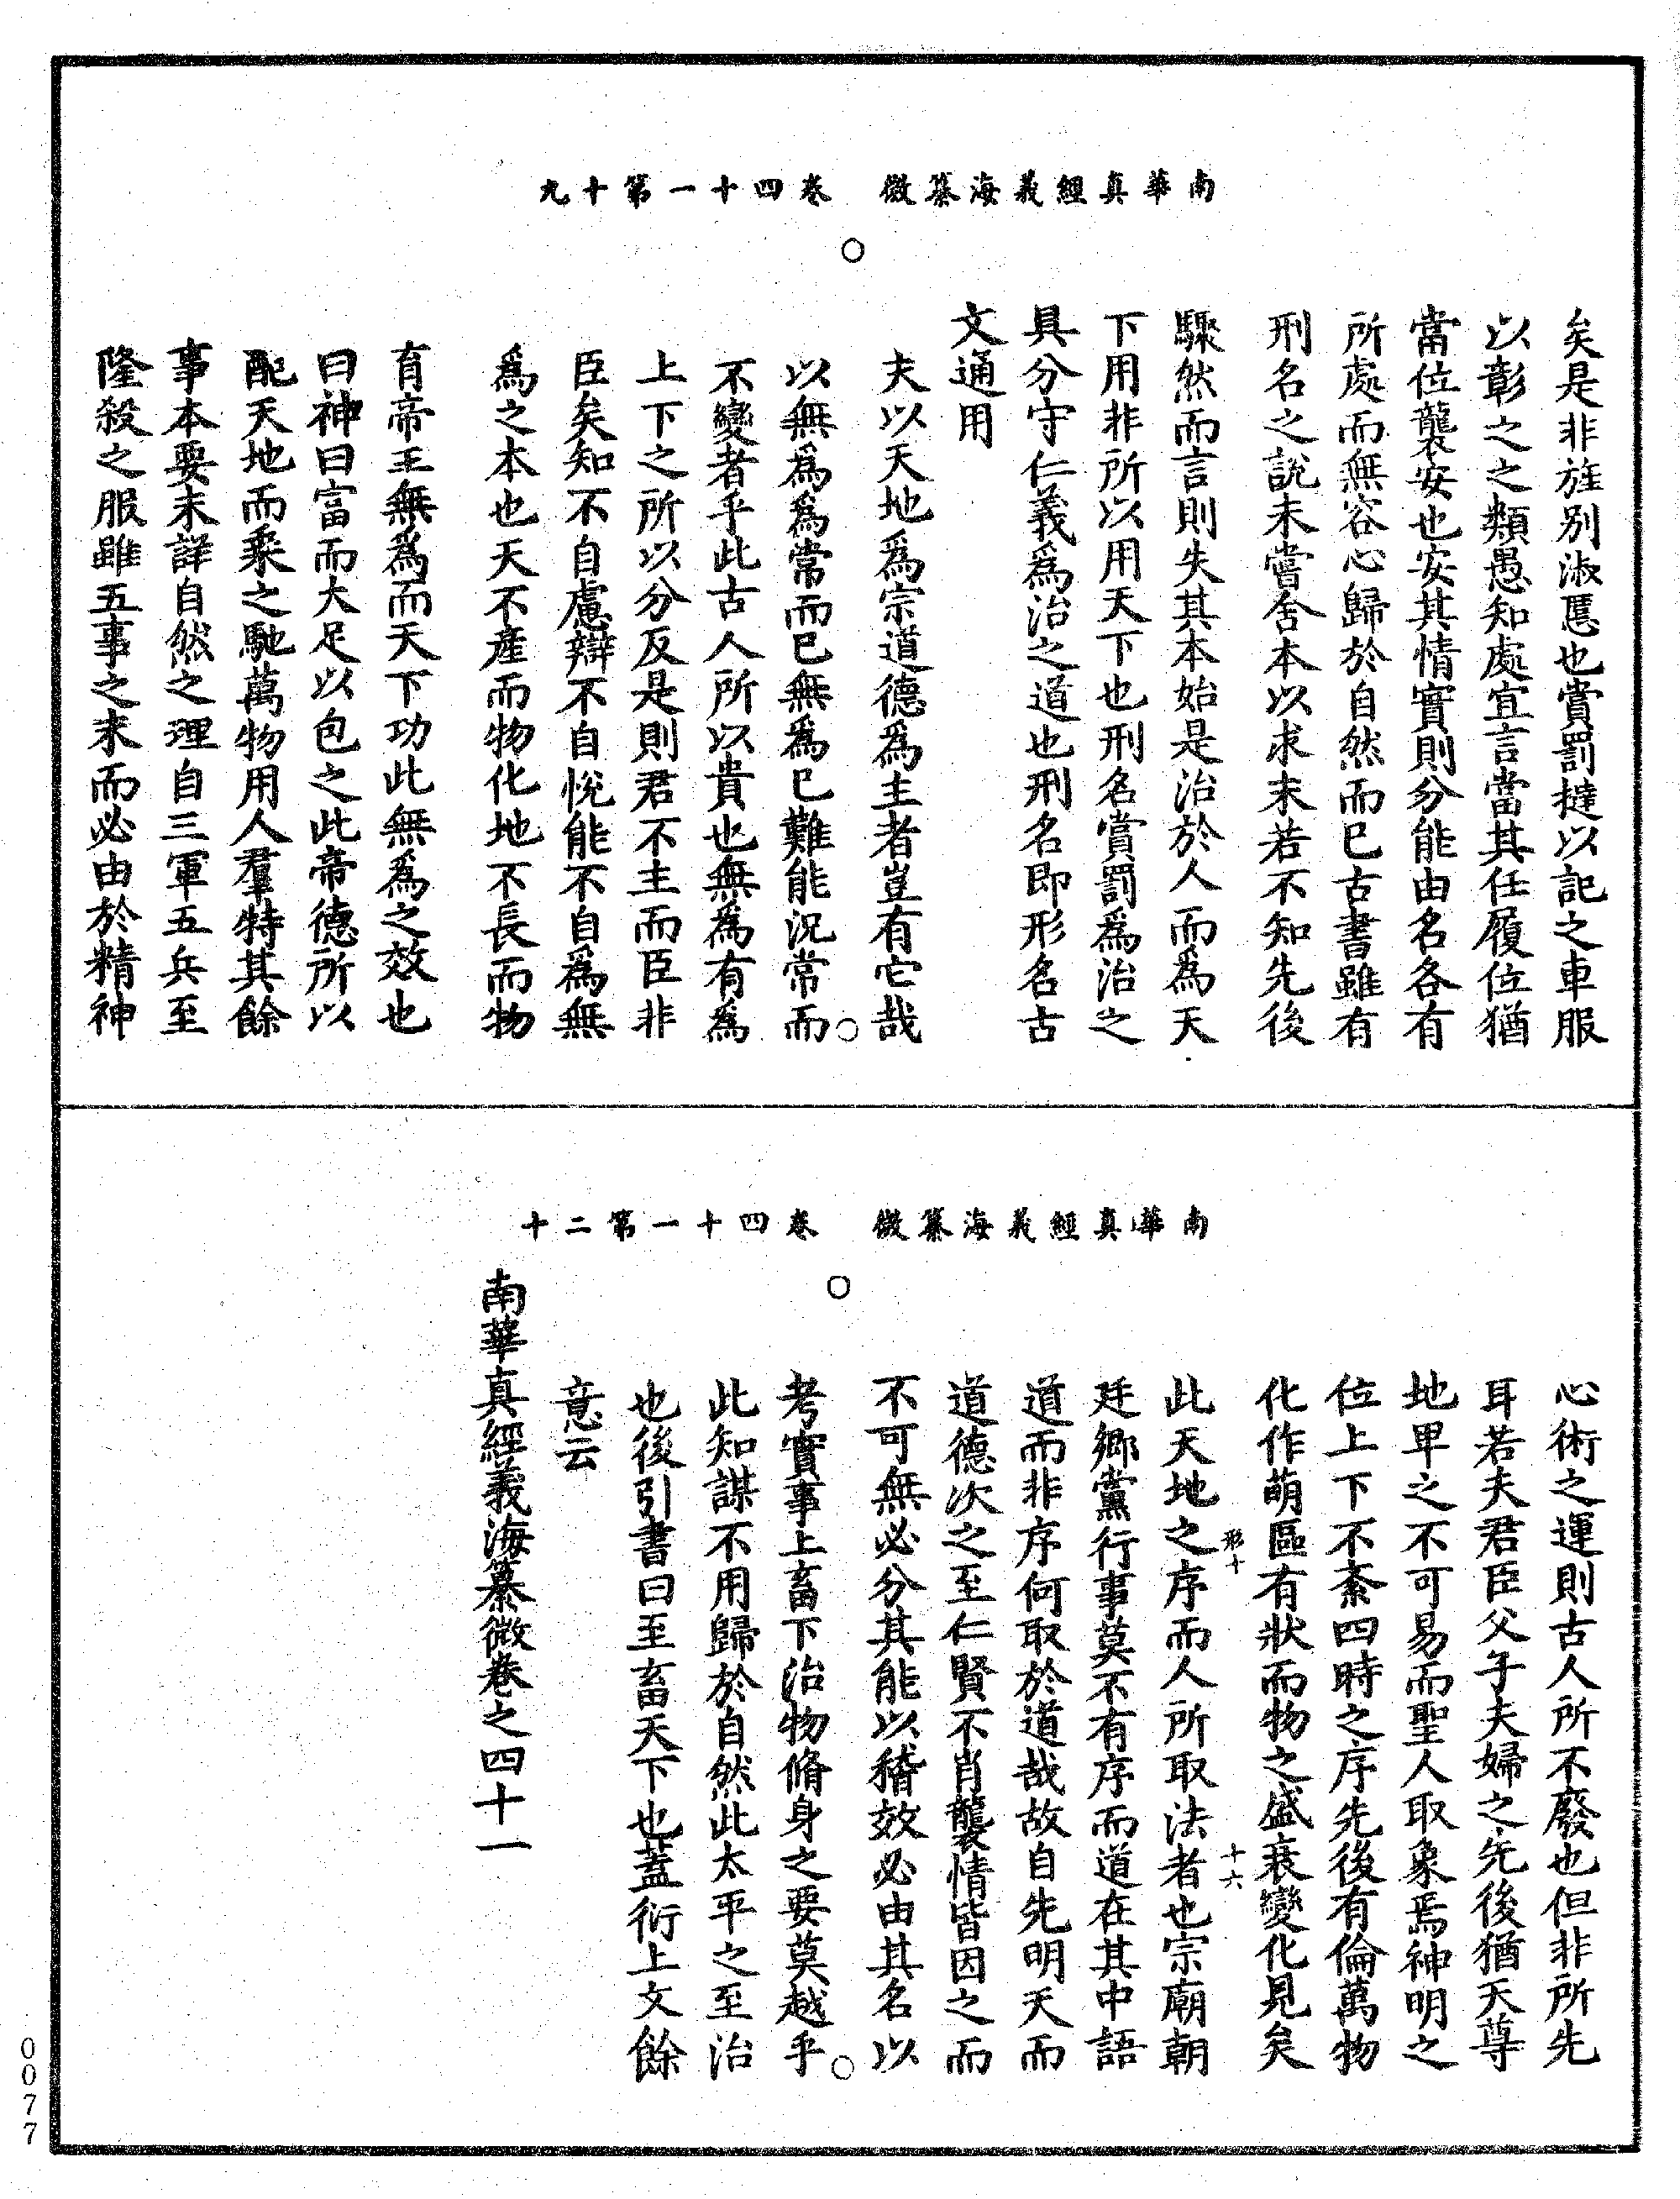 南華真經義海纂微　卷四十一第十九
矣是非旌别淑慝也賞罰撻以記之車服
以彰之之類愚知處宜言當其任履位猶
當位襲安也安其情實則分能由名各有
所處而無容心歸於自然而已古書雖有
刑名之說未嘗舍本以求末若不知先後
驟然而言則失其本始是治於人而為天
下用非所以用天下也刑名賞罰爲治之
具分守仁義爲治之道也刑名即形名古
文通用
夫以天地爲宗道德爲主者豈有它哉
以無爲爲常而已無爲已難能況常而
不變者乎此古人所以貴也無爲有爲
上下之所以分反是則君不主而臣非
臣矣知不自慮辯不自悅能不自爲無
爲之本也天不產而物化地不長而物
育帝王無爲而天下功此無爲之效也
曰神曰富而大足以包之此帝德所以
配天地而乘之馳萬物用人羣特其餘
事本要末詳自然之理自三軍五兵至
隆殺之服雖五事之末而必由於精神
南華真經義海纂微　卷四十一第二十
心術之運則古人所不廢也但非所先
耳若夫君臣父子夫婦之先後猶天尊
地卑之不可易而聖人取象焉神明之
位上下不紊四時之序先後有倫萬物
化作萌區有狀而物之盛衰變化見矣
形十　十六
此天地之序而人所取法者也宗廟朝
廷鄉黨行事莫不有序而道在其中語
道而非序何取於道哉故自先明天而
道德次之至仁賢不肖襲情皆因之而
不可無必分其能以稽效必由其名以
考實事上畜下治物脩身之要莫越乎
此知謀不用歸於自然此太平之至治
也後引書曰至畜天下也蓋衍上文餘
意云
南華真經義海纂微卷之四十一
0077